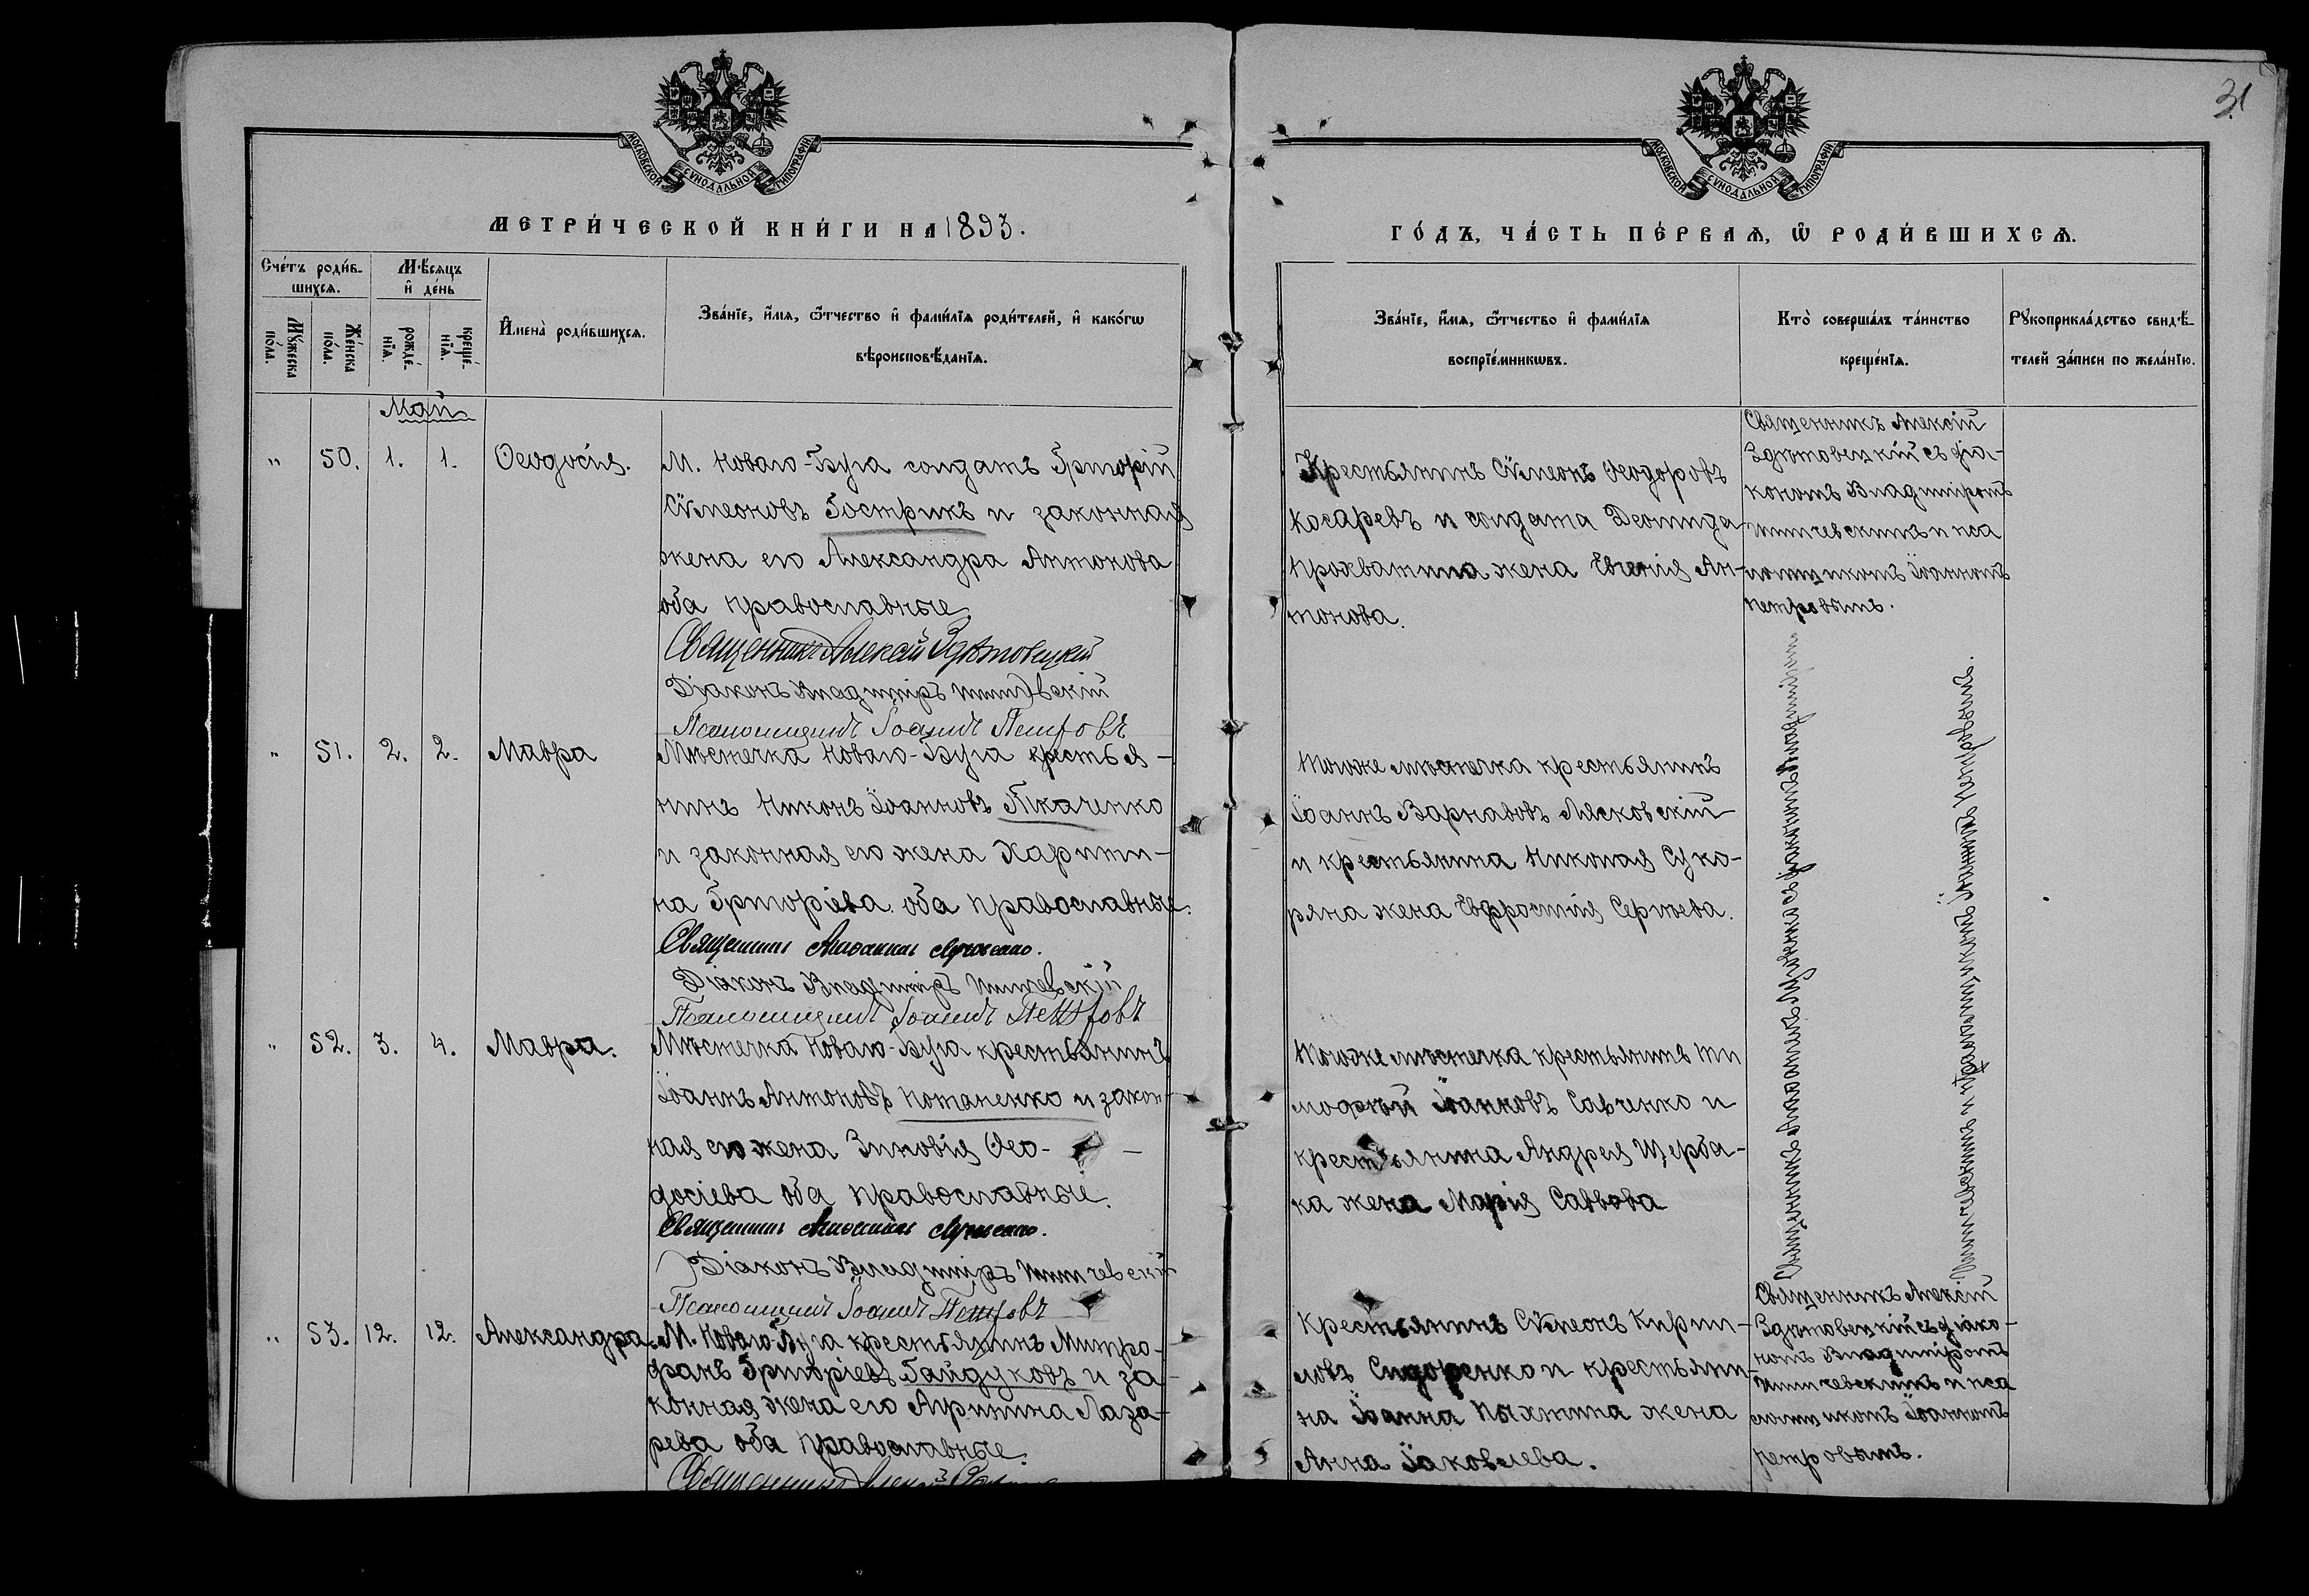 31
МОСКОВСКОЙ СѴНОДАЛЬНОЙ ТИПОГРАФІИ
МОСКОВСКОЙ СѴНОДАЛЬНОЙ ТИПОГРАФІИ
МЕТРИ́ЧЕСКОЙ КНИ́ГИ НА 1893.
ГО́ДЪ, ЧА́СТЬ ПЕ́РВАѦ, Ѿ РОДИ́ВШИХСѦ.
Сче́тъ роди́в-
шихсѧ.
Мѣ́сѧцъ
и҆ де́нь
Мꙋ́жеска по́ла.
Же́нска по́ла.
рожде́-нїѧ.
креще́-нїѧ.
И҆мена̀ роди́вшихсѧ.
Зва́нїе, и҆́мѧ, ѻ҆́тчество и҆ фами́лїѧ роди́телей, и҆ како́гѡ
вѣроисповѣ́данїѧ.
Зва́нїе, и҆́мѧ, ѻ҆́тчество и҆ фами́лїѧ
воспрїе́мникѡвъ.
Кто̀ соверша́лъ та́инство
креще́нїѧ.
Рꙋкоприкла́дство свидѣ́-
телей за́писи по жела́нїю.
Май
" 50. 1. 1. Ѳеодосія.
М. Новаго-Буга солдатъ Григорій
Сѵмеоновъ Гострикъ и законная
жена его Александра Антонова
оба православные.
Священникъ Алексій Здѣтовецкій
Діаконъ Владиміръ
Псаломщикъ Іоаннъ Петровъ
Крестьянинъ Сѵмеонъ Ѳеодоровъ
Косаревъ и солдата Леонида
Прохватила жена Евгенія Ан-
тонова.
Священникъ Алексій
Здѣтовецкій съ діа-
кономъ Владиміромъ
и пса
ломщикомъ Іоанномъ
Петровымъ.
" 51. 2. 2. Мавра
Мѣстечка Новаго-Буга крестья-
нинъ Никонъ Іоанновъ Ткаченко
и законная его жена Харити-
на Григоріева оба православные.
Священникъ
Діаконъ Владиміръ
Псаломщикъ Іоаннъ Петровъ
Тогоже мѣстечка крестьянинъ
Іоаннъ Варнавовъ Лясковскій
и крестьянина Николая Суко-
ряна жена Евфросинія Сергѣева.
Священникъ съ діакономъ Владиміромъ
и псаломщикомъ Іоанномъ Петровымъ.
" 52. 3. 4. Мавра.
Мѣстечка Новаго-Буга крестьянинъ
Іоаннъ Антоновъ Потаненко и закон-
ная его жена Зиновія Ѳео-
досіева оба православные.
Священникъ
Діаконъ Владиміръ
Псаломщикъ Іоаннъ Петровъ
Тогоже мѣстечка крестьянинъ Ти
моѳей Іоанновъ Савченко и
крестьянина Андрея Щерба-
ка жена Марія Саввова
" 53. 12. 12. Александра.
М. Новаго-Буга крестьянинъ Митро-
фанъ Григоріевъ Гайдуковъ и за
конная жена его Агрипина Лаза-
рева оба православные.
Священникъ Алексій
Крестьянинъ Сѵмеонъ Кирил-
ловъ Сидоренко и крестьяни-
на Іоанна Пахтина жена
Анна Іаковлева.
Священникъ Алексій
Здѣтовецкій съ діако-
номъ Владиміромъ
и пса
ломщикомъ Іоанномъ
Петровымъ.